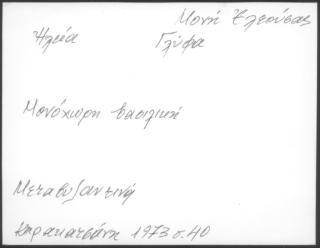 Μονή Ἐλεούσας
Ἠλεία Γλύφα
Μονόχωρη βασιλική
Μεταβυζαντινή
Καρακατσάνη 1973 σ. 40